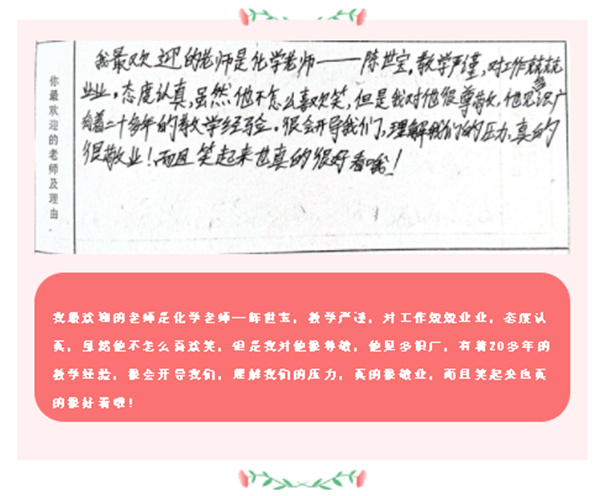 你最欢迎的老师及理由
我最欢迎的老师是化学老师——陈世宝,教学严谨,对工作兢兢
业业,态度认真,虽然他不怎么喜欢笑,但是我对他很尊敬,他见多识广
有着二十多年的教学经验。很会开导我们,理解我们的压力,真的
很敬业!而且笑起来也真的很好看哦!
我最欢迎的老师是化学老师—陈世宝,教学严谨,对工作兢兢业业,态度认
真,虽然他不怎么喜欢笑,但是我对他很尊敬,他见多识广,有着20多年的
教学经验,很会开导我们,理解我们的压力,真的很敬业,而且笑起来也真
的很好看哦!